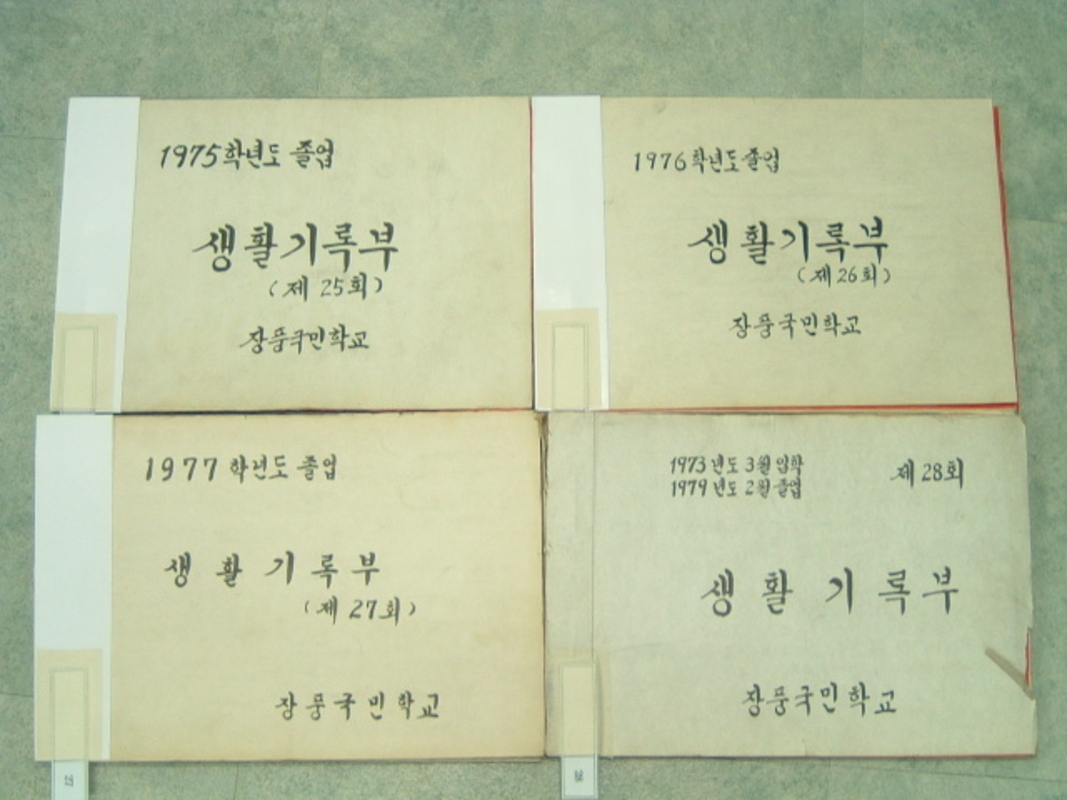 1975학년도 졸업
생활기록부
(제 25회)
장풍국민학교
1976학년도졸업
생활기록부
(제26회)
장풍국민학교
1977 학년도 졸업
생활기록부
(제 27회)
장풍국민학교
27
1973년도 3월 입학
1979년도 2월 졸업
제 28회
생활기록부
장풍국민학교